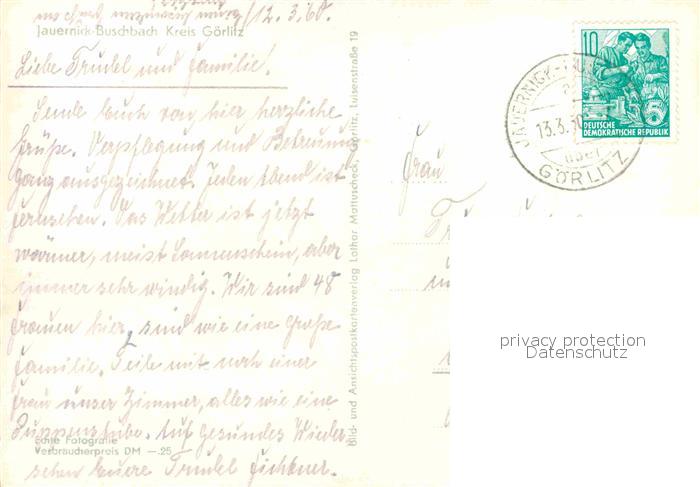 12. 3. 60.
Jauernick-Buschbach Kreis Görlitz
Liebe Trudel und Familie!
Sende Euch von hier herzliche
Grüße. Verpflegung und Betreuung
ganz ausgezeichnet. Jeden Abend ist
Fernsehen. Das Wetter ist jetzt
wärmer, meist Sonnenschein, aber
immer sehr windig. Wir sind 48
Frauen hier, sind wie eine große
Familie. Teile mit noch einer
Frau unser Zimmer, alles wie eine
Puppenstube. Auf Gesundes Wieder
sehen Euere Trudel
Echte Fotografie
Verbraucherpreis DM —.25
Bild- und Ansichtspostkartenverlag Lothar Mattuscheck, Görlitz, Luisenstraße 19
10
5
DEUTSCHE
DEMOKRATISCHE REPUBLIK
JAUERNICK-
13.3.
über
GÖRLITZ
Frau
privacy protection
Datenschutz